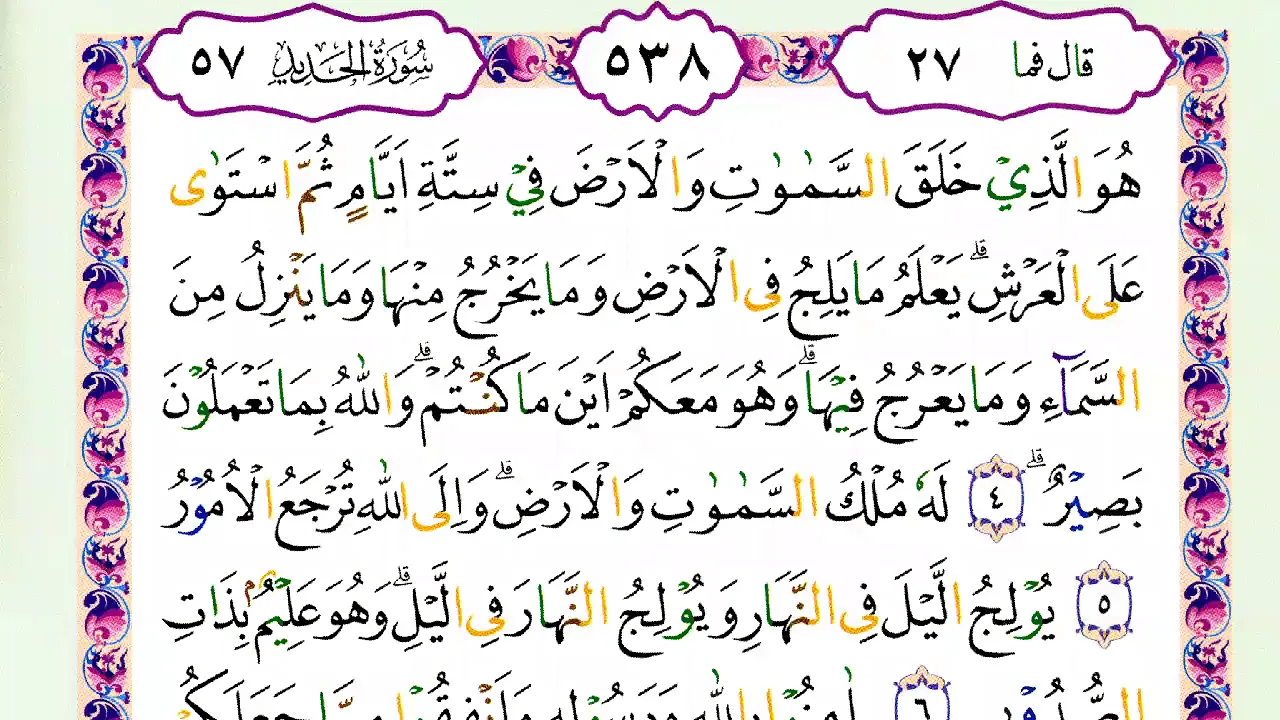 قال فما ٢٧ ٥٣٨ سُوْرَةُ الْحَدِيْدِ ٥٧
هُوَ الَّذِيْ خَلَقَ السَّمٰوٰتِ وَالْاَرْضَ فِيْ سِتَّةِ اَيَّامٍ ثُمَّ اسْتَوٰى
عَلَى الْعَرْشِۗ يَعْلَمُ مَا يَلِجُ فِى الْاَرْضِ وَمَا يَخْرُجُ مِنْهَا وَمَا يَنْزِلُ مِنَ
السَّمَاۤءِ وَمَا يَعْرُجُ فِيْهَاۗ وَهُوَ مَعَكُمْ اَيْنَ مَا كُنْتُمْۗ وَاللّٰهُ بِمَا تَعْمَلُوْنَ
بَصِيْرٌۗ ٤ لَهٗ مُلْكُ السَّمٰوٰتِ وَالْاَرْضِۗ وَاِلَى اللّٰهِ تُرْجَعُ الْاُمُوْرُ
٥ يُوْلِجُ الَّيْلَ فِى النَّهَارِ وَيُوْلِجُ النَّهَارَ فِى الَّيْلِۗ وَهُوَ عَلِيْمٌۢ بِذَاتِ
الصُّدُوْرِ ٦ اٰمِنُوْا بِاللّٰهِ وَرَسُوْلِهٖ وَاَنْفِقُوْا مِمَّا جَعَلَكُمْ